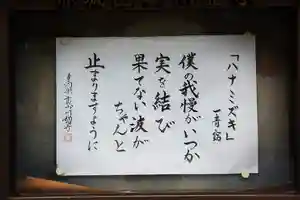 「ハナミズキ」
一青窈
僕の我慢がいつか
実を結び
果てない波が
ちゃんと
止まりますように